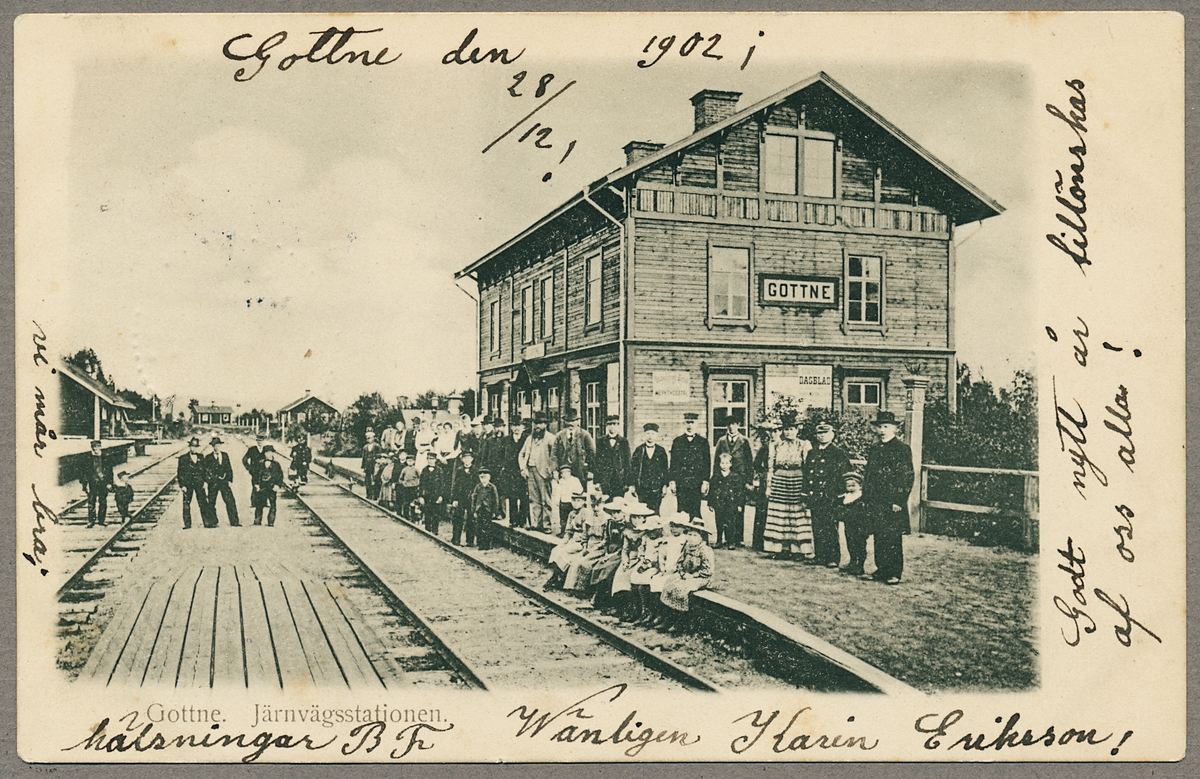 Gottne den 28/12 1902;
!
GOTTNE
DAGBLAD
Godt nytt år tillönskas
af oss alla!
vi mår bra;
Gottne. Järnvägsstationen.
hälsningar B Fr Wänligen Karin Eriksson!